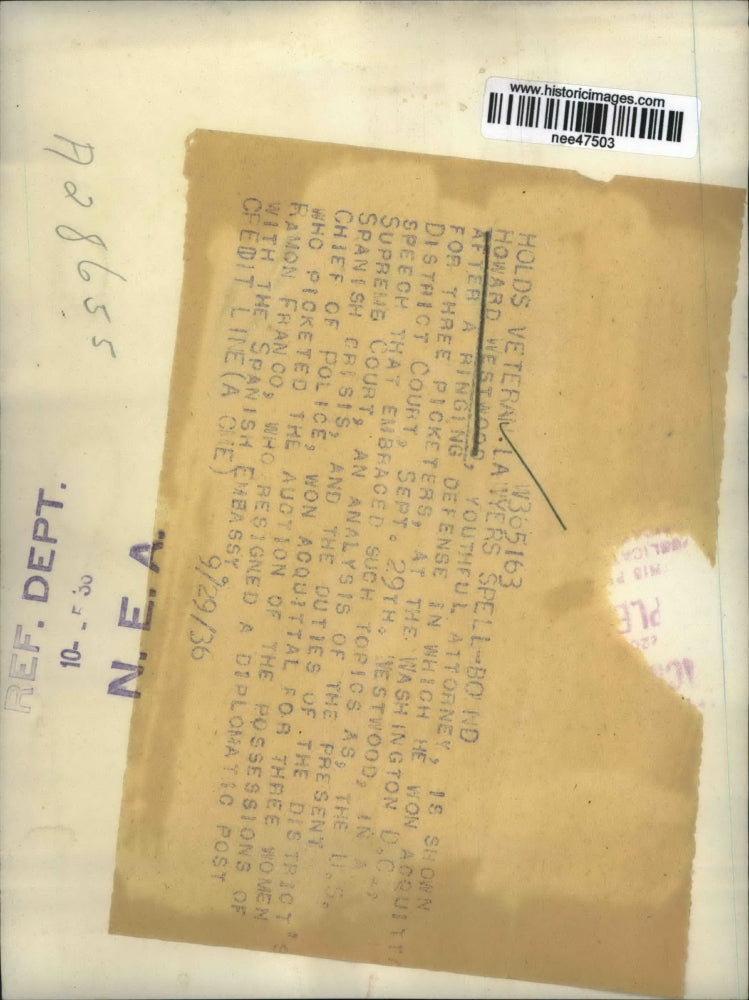 www.historicimages.com
nee47503
A28655
W365163
HOLDS VETERAN LAWYERS SPELL-BOUND
HOWARD WESTWOOD, YOUTHFUL ATTORNEY, IS SHOWN
AFTER A RINGING DEFENSE IN WHICH HE WON ACQUITT
FOR THREE PICKETERS, AT THE WASHINGTON D.C.,
DISTRICT COURT, SEPT. 29TH. WESTWOOD, IN A
SPEECH THAT EMBRACED SUCH TOPICS AS, THE U.S.
SUPREME COURT, AN ANALYSIS OF THE PRESENT
SPANISH CRISIS, AND THE DUTIES OF THE DISTRICT'S
CHIEF OF POLICE, WON ACQUITTAL FOR THREE WOMEN
WHO PICKETED THE AUCTION OF THE POSSESSIONS OF
RAMON FRANCO, WHO RESIGNED A DIPLOMATIC POST
WITH THE SPANISH EMBASSY
CREDIT LINE (ACME) 9/29/36
REF. DEPT.
N. E. A.
PLE